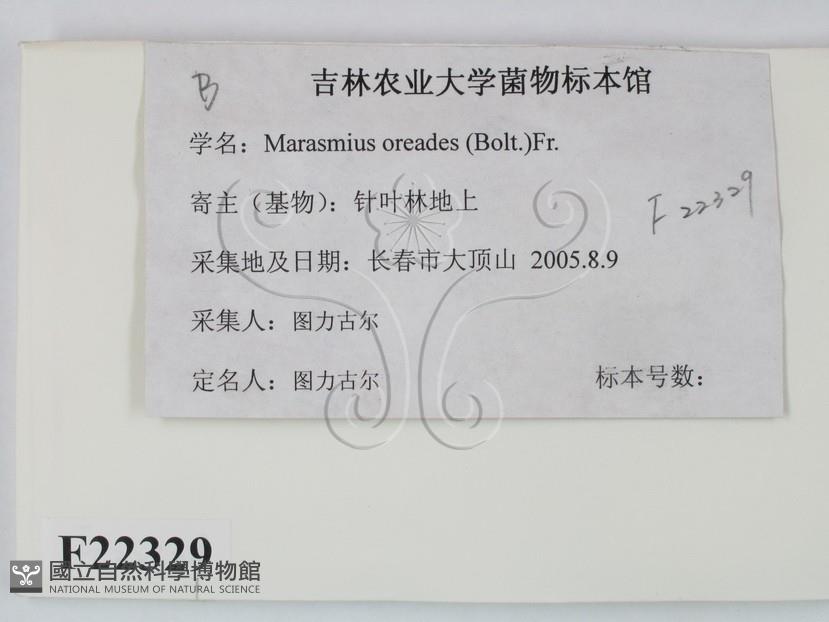 B
吉林农业大学菌物标本馆
学名：Marasmius oreades (Bolt.)Fr.
寄主（基物）：针叶林地上
F 22329
采集地及日期：长春市大顶山 2005.8.9
采集人：图力古尔
定名人：图力古尔
标本号数：
F22329
國立自然科學博物館
NATIONAL MUSEUM OF NATURAL SCIENCE